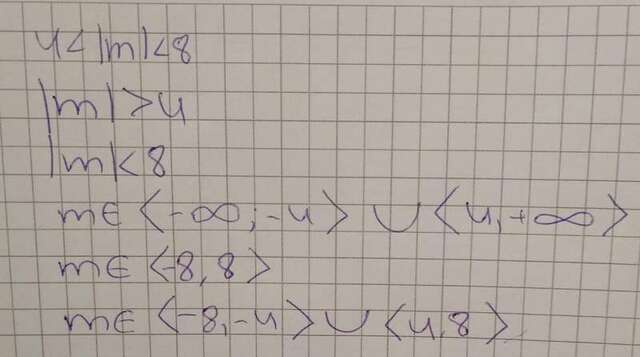 4<|m|<8
|m|>4
|m|<8
m∈ <-∞;-4> ∪ <4,+∞>
m∈ <-8,8>
m∈ <-8,-4>∪<4,8>